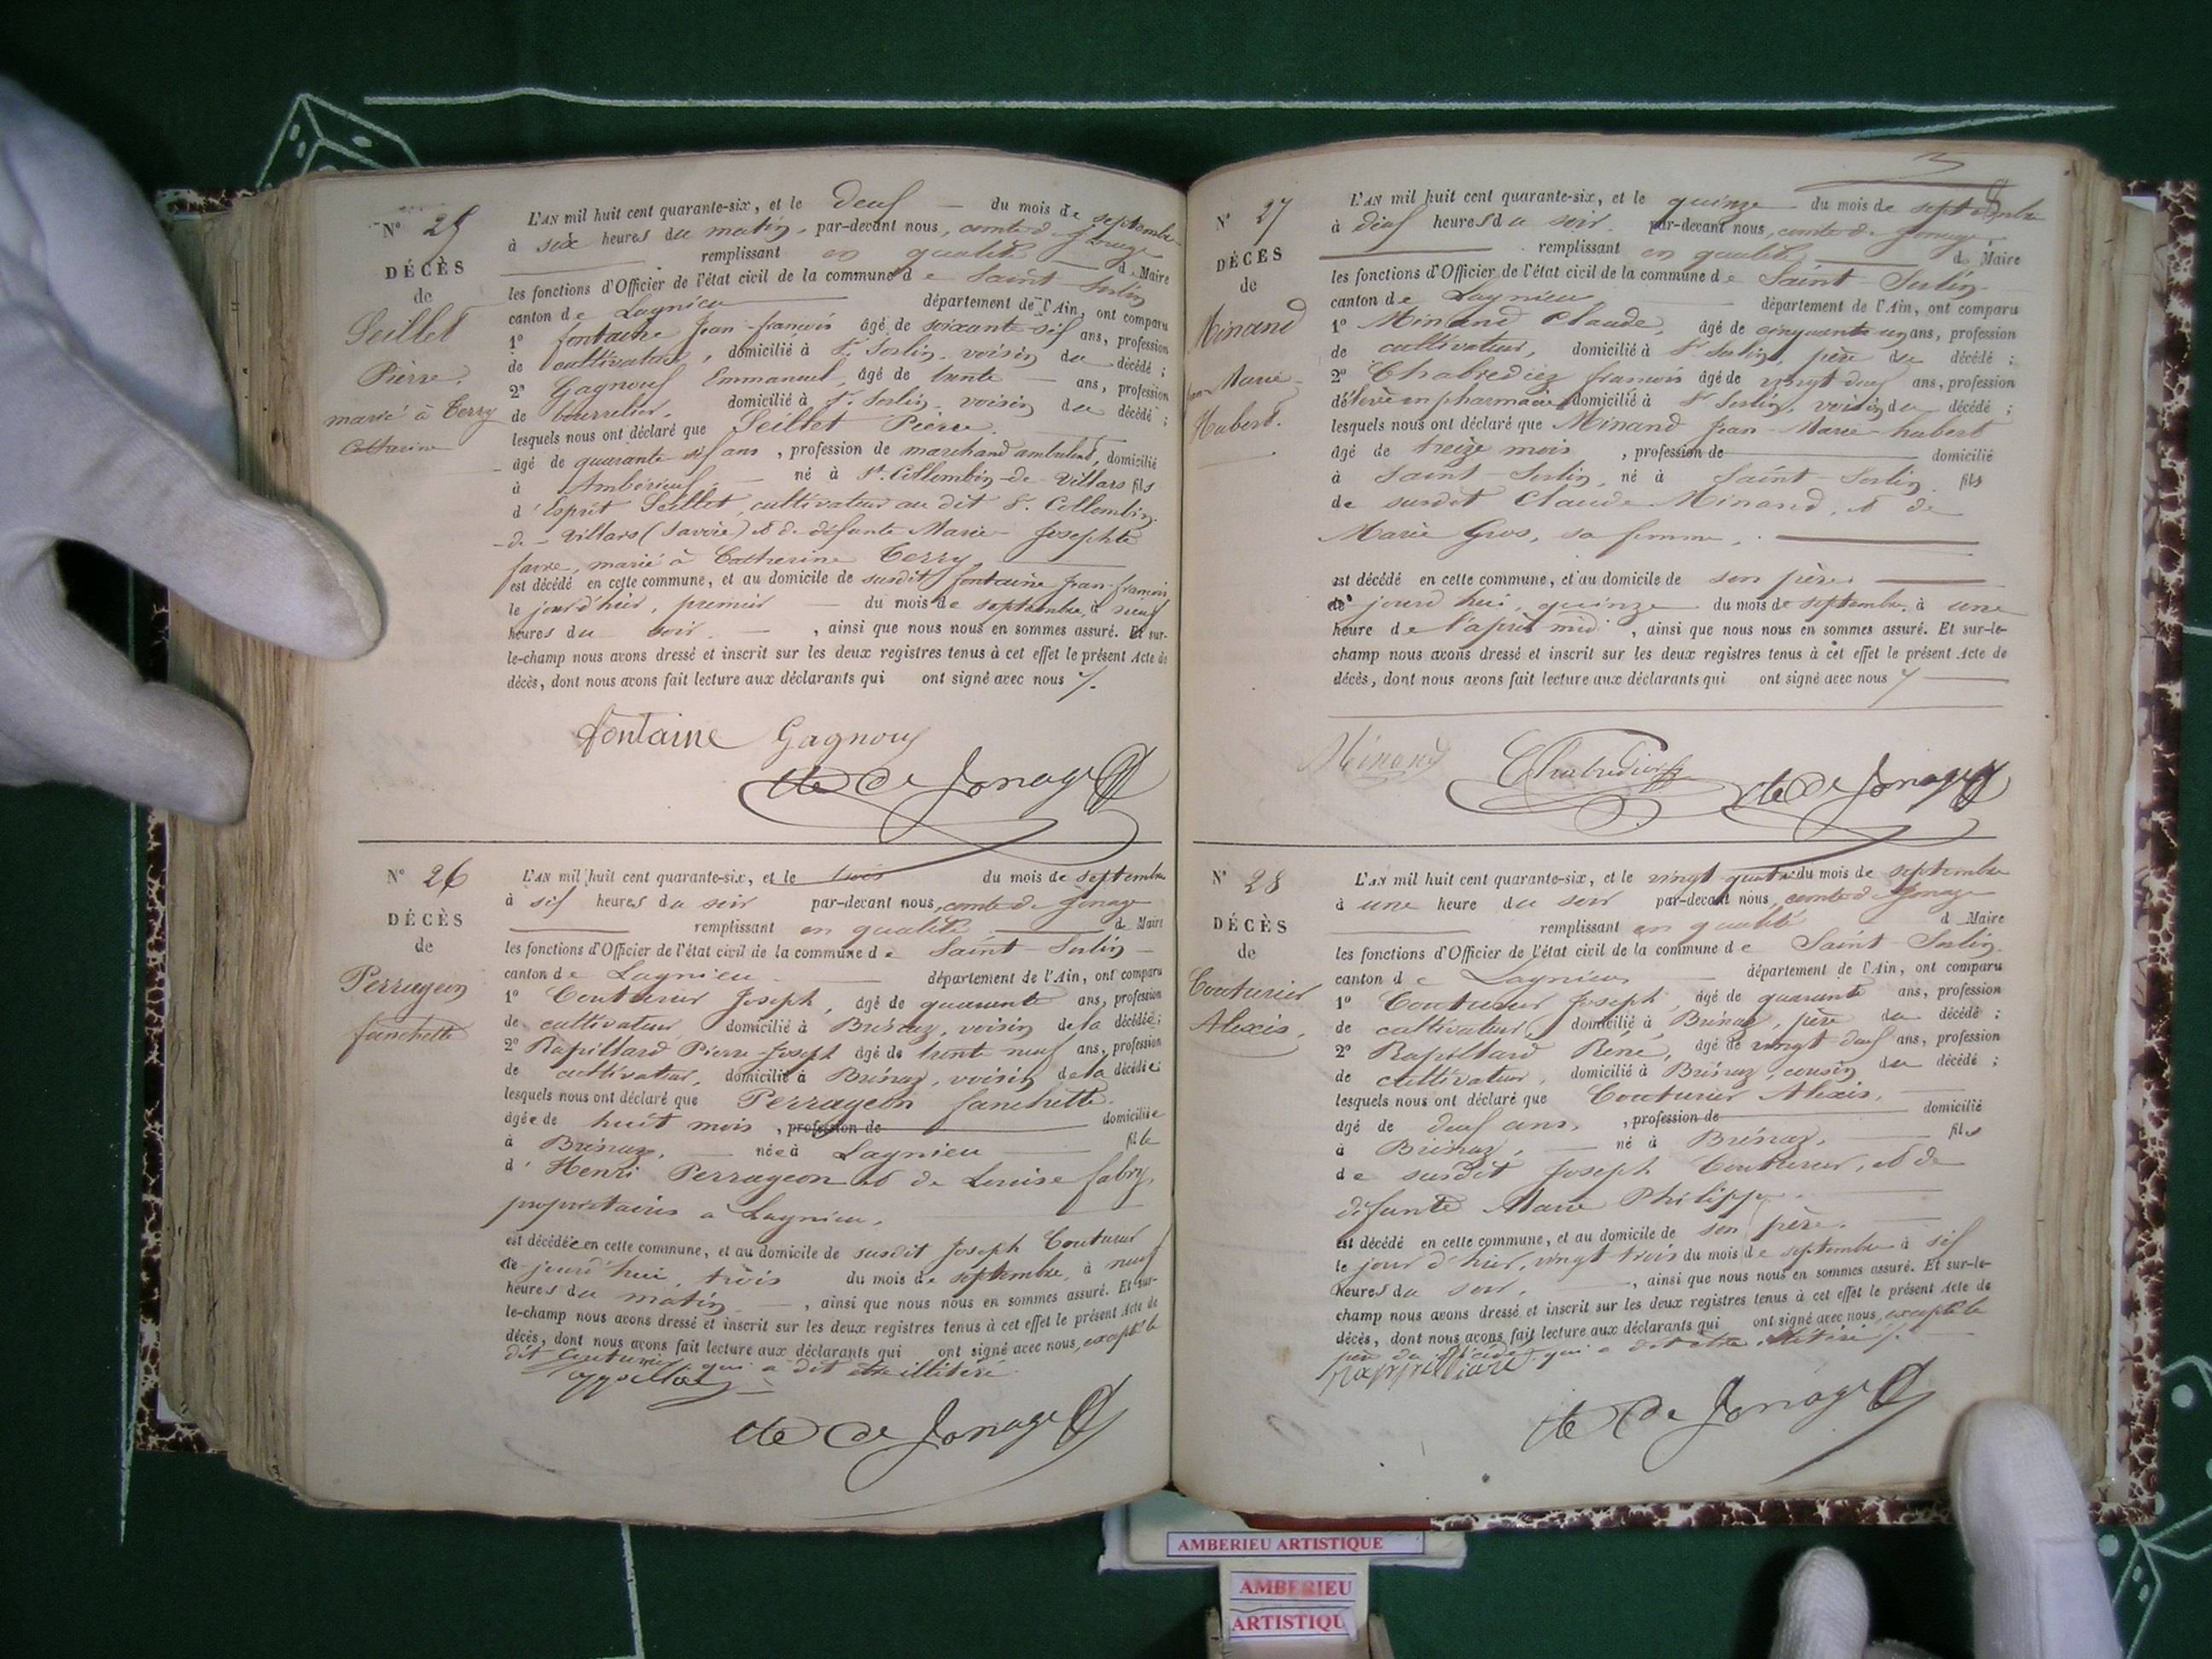 N° 25
DÉCÈS
de
Seillet
Pierre.
marié à Terry
Catherine
L'AN mil huit cent quarante-six, et le deux du mois de septembre
à six heures du matin, par-devant nous, comte de Jonage
remplissant en qualité de Maire
les fonctions d'Officier de l'état civil de la commune de Saint Sorlin
canton de Lagnieu département de l'Ain, ont comparu
1° fontaine Jean françois âgé de soixante six ans, profession
de cultivateur, domicilié à St Sorlin, voisin du décédé ;
2° Gagnoux Emmanuel, âgé de trente ans, profession
de bourrelier, domicilié à St Sorlin, voisin du décédé ;
lesquels nous ont déclaré que Seillet Pierre.
âgé de quarante six ans, profession de marchand ambulant, domicilié
à Ambérieux, né à St Collombin-de-Villars fils
d'Esprit Seillet, cultivateur au dit St Collombin
-de-Villars (Savoie) & de défunte Marie-Josephte
favre, marié à Catherine Terry
est décédé en cette commune, et au domicile de susdit fontaine Jean-françois
le jour d'hier, premier du mois de septembre, à neuf
heures du soir, ainsi que nous nous en sommes assuré. Et sur-
le-champ nous avons dressé et inscrit sur les deux registres tenus à cet effet le présent Acte de
décès, dont nous avons fait lecture aux déclarants qui ont signé avec nous
fontaine Gagnoux
cte de Jonage
N° 26
DÉCÈS
de
Perrageon
fanchette
L'AN mil huit cent quarante-six, et le trois du mois de septembre
à six heures du soir par-devant nous, comte de Jonage
remplissant en qualité de Maire
les fonctions d'Officier de l'état civil de la commune de Saint Sorlin
canton de Lagnieu département de l'Ain, ont comparu
1° Couturier Joseph, âgé de quarante ans, profession
de cultivateur domicilié à Brénaz, voisin de la décédée ;
2° Rapillard Pierre-Joseph âgé de trente neuf ans, profession
de cultivateur, domicilié à Brénaz, voisin de la décédée ;
lesquels nous ont déclaré que Perrageon fanchette.
âgée de huit mois, profession de domiciliée
à Brénaz, née à Lagnieu fille
d'Henri Perrageon & de Louise fabry,
propriétaires à Lagnieu,
est décédée en cette commune, et au domicile de susdit Joseph Couturier
ce jourd'hui, trois du mois de septembre, à neuf
heures du matin, ainsi que nous nous en sommes assuré. Et sur-
le-champ nous avons dressé et inscrit sur les deux registres tenus à cet effet le présent Acte de
décès, dont nous avons fait lecture aux déclarants qui ont signé avec nous, excepté le
dit Couturier qui a dit être illitéré
cte de Jonage
N° 27
DÉCÈS
de
Minand
Jean Marie
Hubert.
L'AN mil huit cent quarante-six, et le quinze du mois de septembre
à deux heures du soir, par-devant nous, comte de Jonage,
remplissant en qualité de Maire
les fonctions d'Officier de l'état civil de la commune de Saint Sorlin
canton de Lagnieu département de l'Ain, ont comparu
1° Minand Claude, âgé de cinquante un ans, profession
de cultivateur, domicilié à St Sorlin, père du décédé ;
2° Chabrediez françois âgé de vingt deux ans, profession
d'élève en pharmacie, domicilié à St Sorlin, voisin du décédé ;
lesquels nous ont déclaré que Minand Jean-Marie-hubert
âgé de treize mois, profession de domicilié
à Saint Sorlin, né à Saint Sorlin fils
de susdit Claude Minand, & de
Marie Gros, sa femme,
est décédé en cette commune, et au domicile de son père
ce jourd'hui, quinze du mois de septembre, à une
heure de l'après midi, ainsi que nous nous en sommes assuré. Et sur-le-
champ nous avons dressé et inscrit sur les deux registres tenus à cet effet le présent Acte de
décès, dont nous avons fait lecture aux déclarants qui ont signé avec nous
Minand Chabrediez cte de Jonage
N° 28
DÉCÈS
de
Couturier
Alexis.
L'AN mil huit cent quarante-six, et le vingt-quatre du mois de septembre
à une heure du soir par-devant nous, comte de Jonage
remplissant en qualité de Maire
les fonctions d'Officier de l'état civil de la commune de Saint Sorlin
canton de Lagnieu département de l'Ain, ont comparu
1° Couturier Joseph, âgé de quarante ans, profession
de cultivateur, domicilié à Brénaz, père du décédé ;
2° Rapillard René, âgé de vingt deux ans, profession
de cultivateur, domicilié à Brénaz, cousin du décédé ;
lesquels nous ont déclaré que Couturier Alexis,
âgé de deux ans, profession de domicilié
à Brénaz, né à Brénaz, fils
de susdit Joseph Couturier, & de
défunte Marie Philippe
est décédé en cette commune, et au domicile de son père.
le jour d'hier, vingt trois du mois de septembre à six
heures du soir, ainsi que nous nous en sommes assuré. Et sur-le-
champ nous avons dressé et inscrit sur les deux registres tenus à cet effet le présent Acte de
décès, dont nous avons fait lecture aux déclarants qui ont signé avec nous, excepté le
père du décédé qui a dit être illitéré
rappilliard
cte de Jonage
AMBERIEU ARTISTIQUE
AMBERIEU
ARTISTIQU